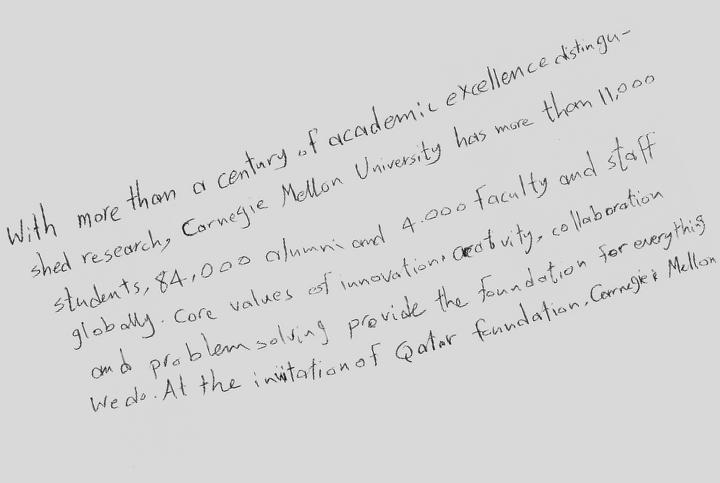 With more than a century of academic excellence distingu-
shed research, Carnegie Mellon University has more than 11,000
students, 84,000 alumni and 4.000 faculty and staff
globally. Core values of innovation, creativity, collaboration
and problem solving provide the foundation for everythig
We do. At the invitation of Qatar foundation, Carnegie Mellon